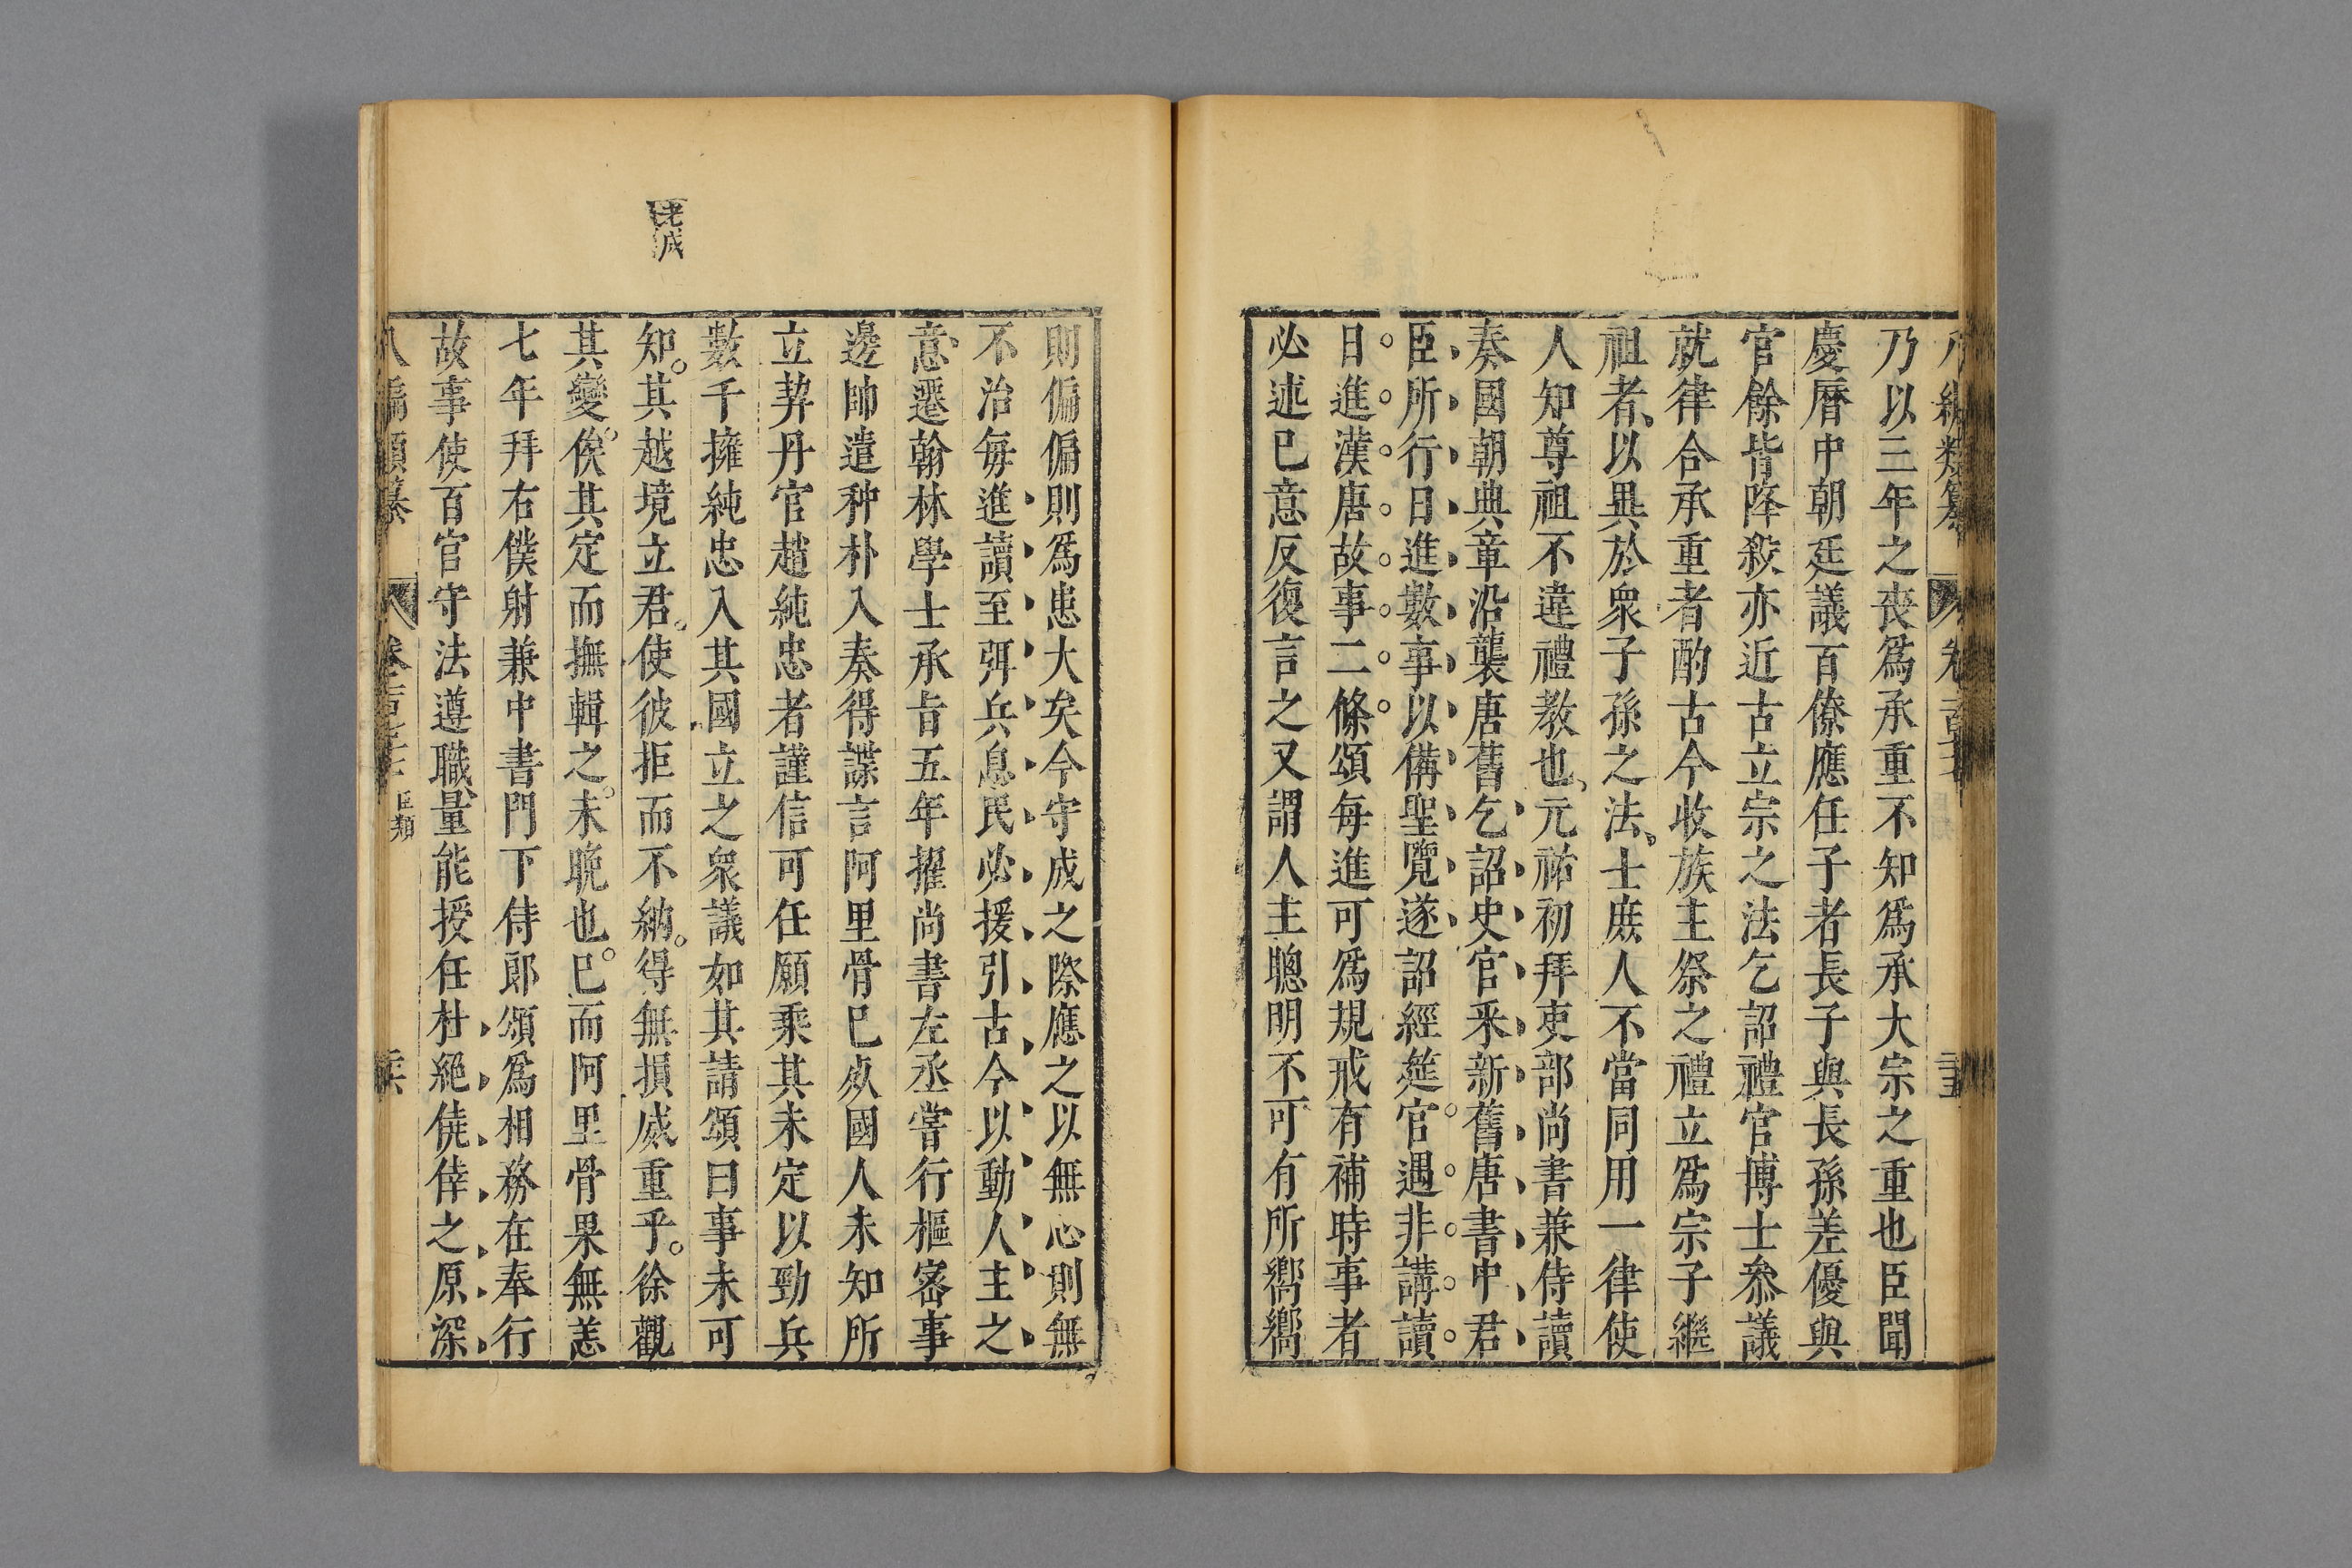 八編類纂 卷
乃以三年之喪爲承重不知爲承大宗之重也臣聞
慶曆中朝廷議百僚應任子者長子與長孫差優與
官餘皆降殺亦近古立宗之法乞詔禮官博士參議
就律合承重者酌古今收族主祭之禮立爲宗子繼
祖者以異於衆子孫之法士庶人不當同用一律使
人知尊祖不違禮教也元祐初拜吏部尚書兼侍讀
奏國朝典章沿襲唐舊乞詔史官釆新舊唐書中君
臣所行日進數事以備聖覽遂詔經筵官遇非講讀
日進漢唐故事二條頌每進可爲規戒有補時事者
必述已意反復言之又謂人主聰明不可有所嚮嚮
則偏偏則爲患大矣今守成之際應之以無心則無
不治每進讀至弭兵息民必援引古今以動人主之
意遷翰林學士承旨五年擢尚書左丞嘗行樞密事
邊帥遣种朴入奏得諜言阿里骨已死國人未知所
立契丹官趙純忠者謹信可任願乘其未定以勁兵
數千擁純忠入其國立之衆議如其請頌曰事未可
知其越境立君使彼拒而不納得無損威重乎徐觀
其變俟其定而撫輯之未晩也已而阿里骨果無恙
七年拜右僕射兼中書門下侍郎頌爲相務在奉行
故事使百官守法遵職量能授任杜絕僥倖之原深
八編類纂 卷 臣類
老成